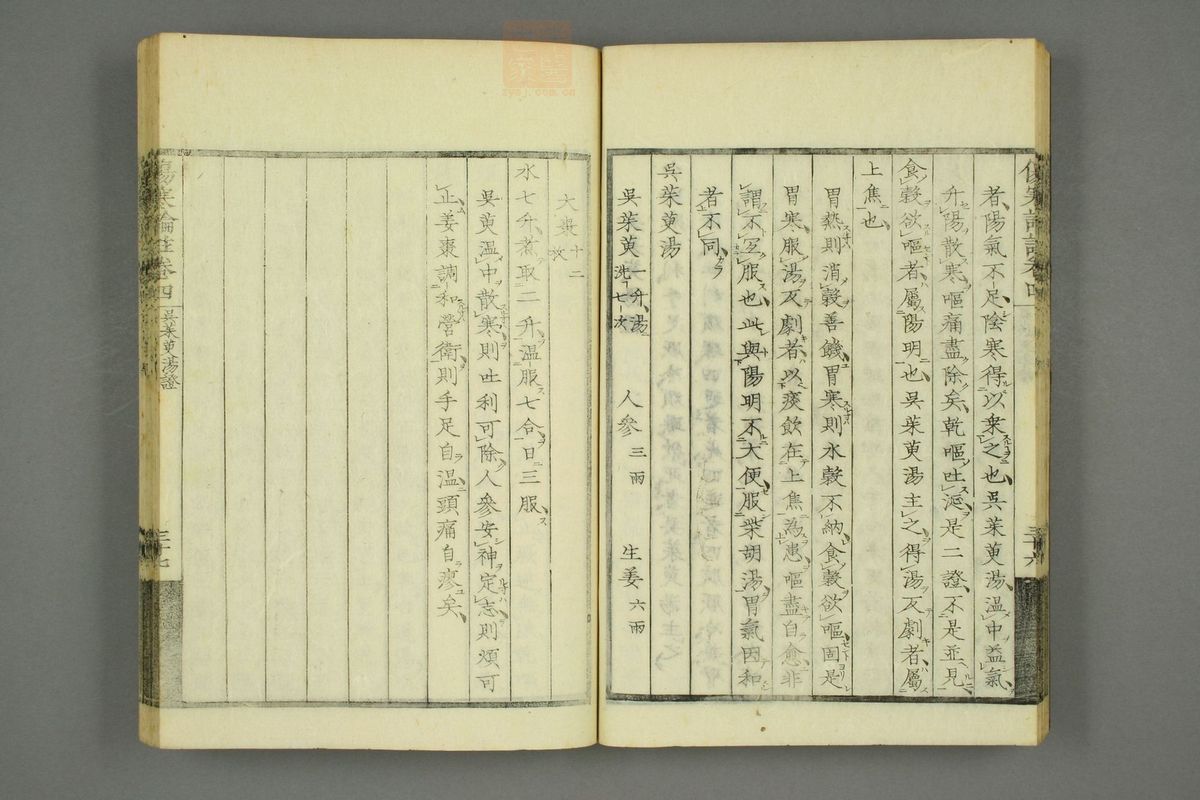 者陽氣不足陰寒得以乘之也吳茱萸湯溫中益氣
升陽散寒嘔痛盡除矣乾嘔吐涎是二證不是並見
食穀欲嘔者屬陽明也吳茱萸湯主之得湯反劇者屬
上焦也
胃熱則消穀善饑胃寒則水穀不納食穀欲嘔固是
胃寒服湯反劇者以痰飲在上焦為患嘔盡自愈非
謂不宜服也此與陽明不大便服柴胡湯胃氣因和
者不同
吳茱萸湯
吳茱萸一升湯洗七次 人參三兩 生姜六兩
大棗十二枚
水七升煮取二升溫服七合日三服
吳萸溫中散寒則吐利可除人參安神定志則煩可
止姜棗調和營衛則手足自溫頭痛自瘳矣
傷寒論註卷四 吳茱萸湯證
三十七
三十六